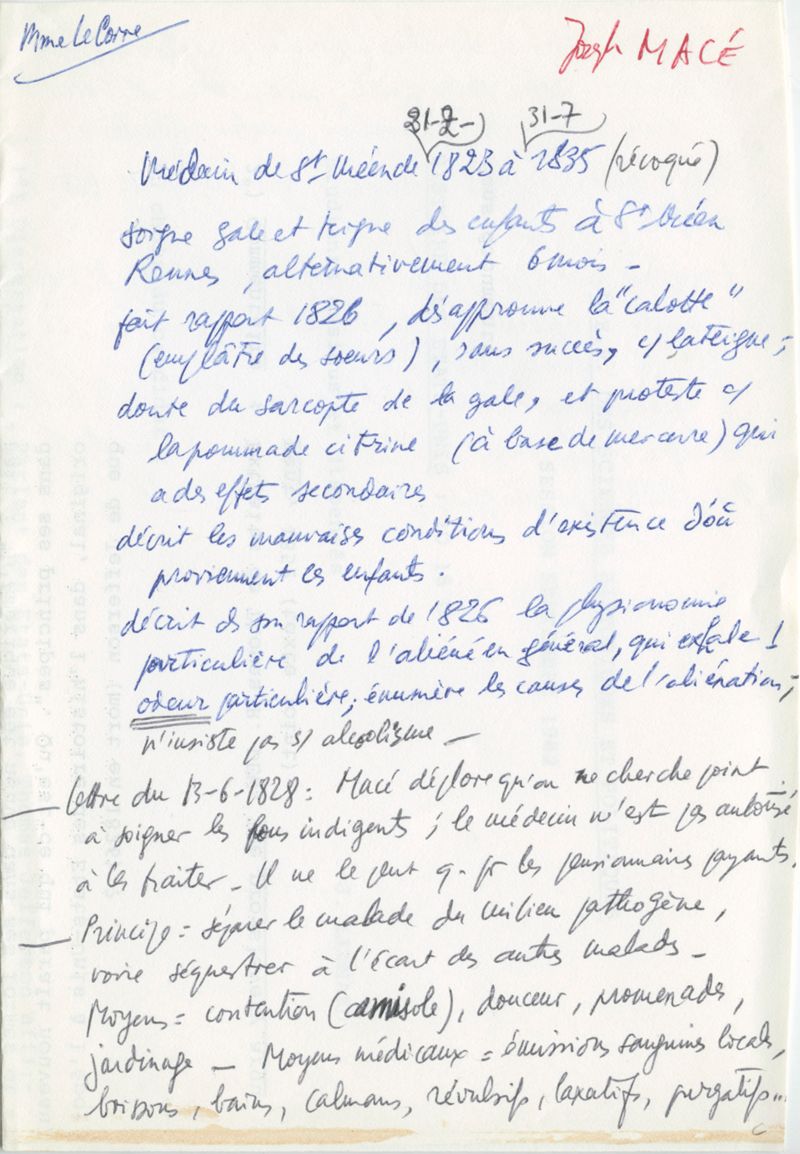 Mme Le Corre
Joseph MACÉ
31-7- 31-7
Médecin de St Méen de 1823 à 1835 (révoqué)
soigne gale et teigne des enfants à St Méen
Rennes, alternativement 6 mois -
fait rapport 1826, désapprouve la "calotte"
(emplâtre des soeurs), sans succès, c/ la teigne ;
doute du sarcopte de la gale, et proteste c/
la pommade citrine (à base de mercure) qui
a des effets secondaires
décrit les mauvaises conditions d'existence d'où
proviennent les enfants.
décrit ds son rapport de 1826 la physionomie
particulière de l'aliéné en général, qui exhale 1
odeur particulière ; énumère les causes de l'aliénation ;
n'insiste pas s/ alcoolisme -
- Lettre du 13-6-1828 : Macé déplore qu'on ne cherche point
à soigner les fous indigents ; le médecin n'est pas autorisé
à les traiter - Il ne le peut q. pr les pensionnaires payants.
- Principe = séparer le malade du milieu pathogène,
voire séquestrer à l'écart des autres malades -
Moyens = contention (camisole), douceur, promenades,
jardinage - Moyens médicaux = émissions sanguines locales,
boissons, bains, calmans, révulsifs, laxatifs, purgatifs...